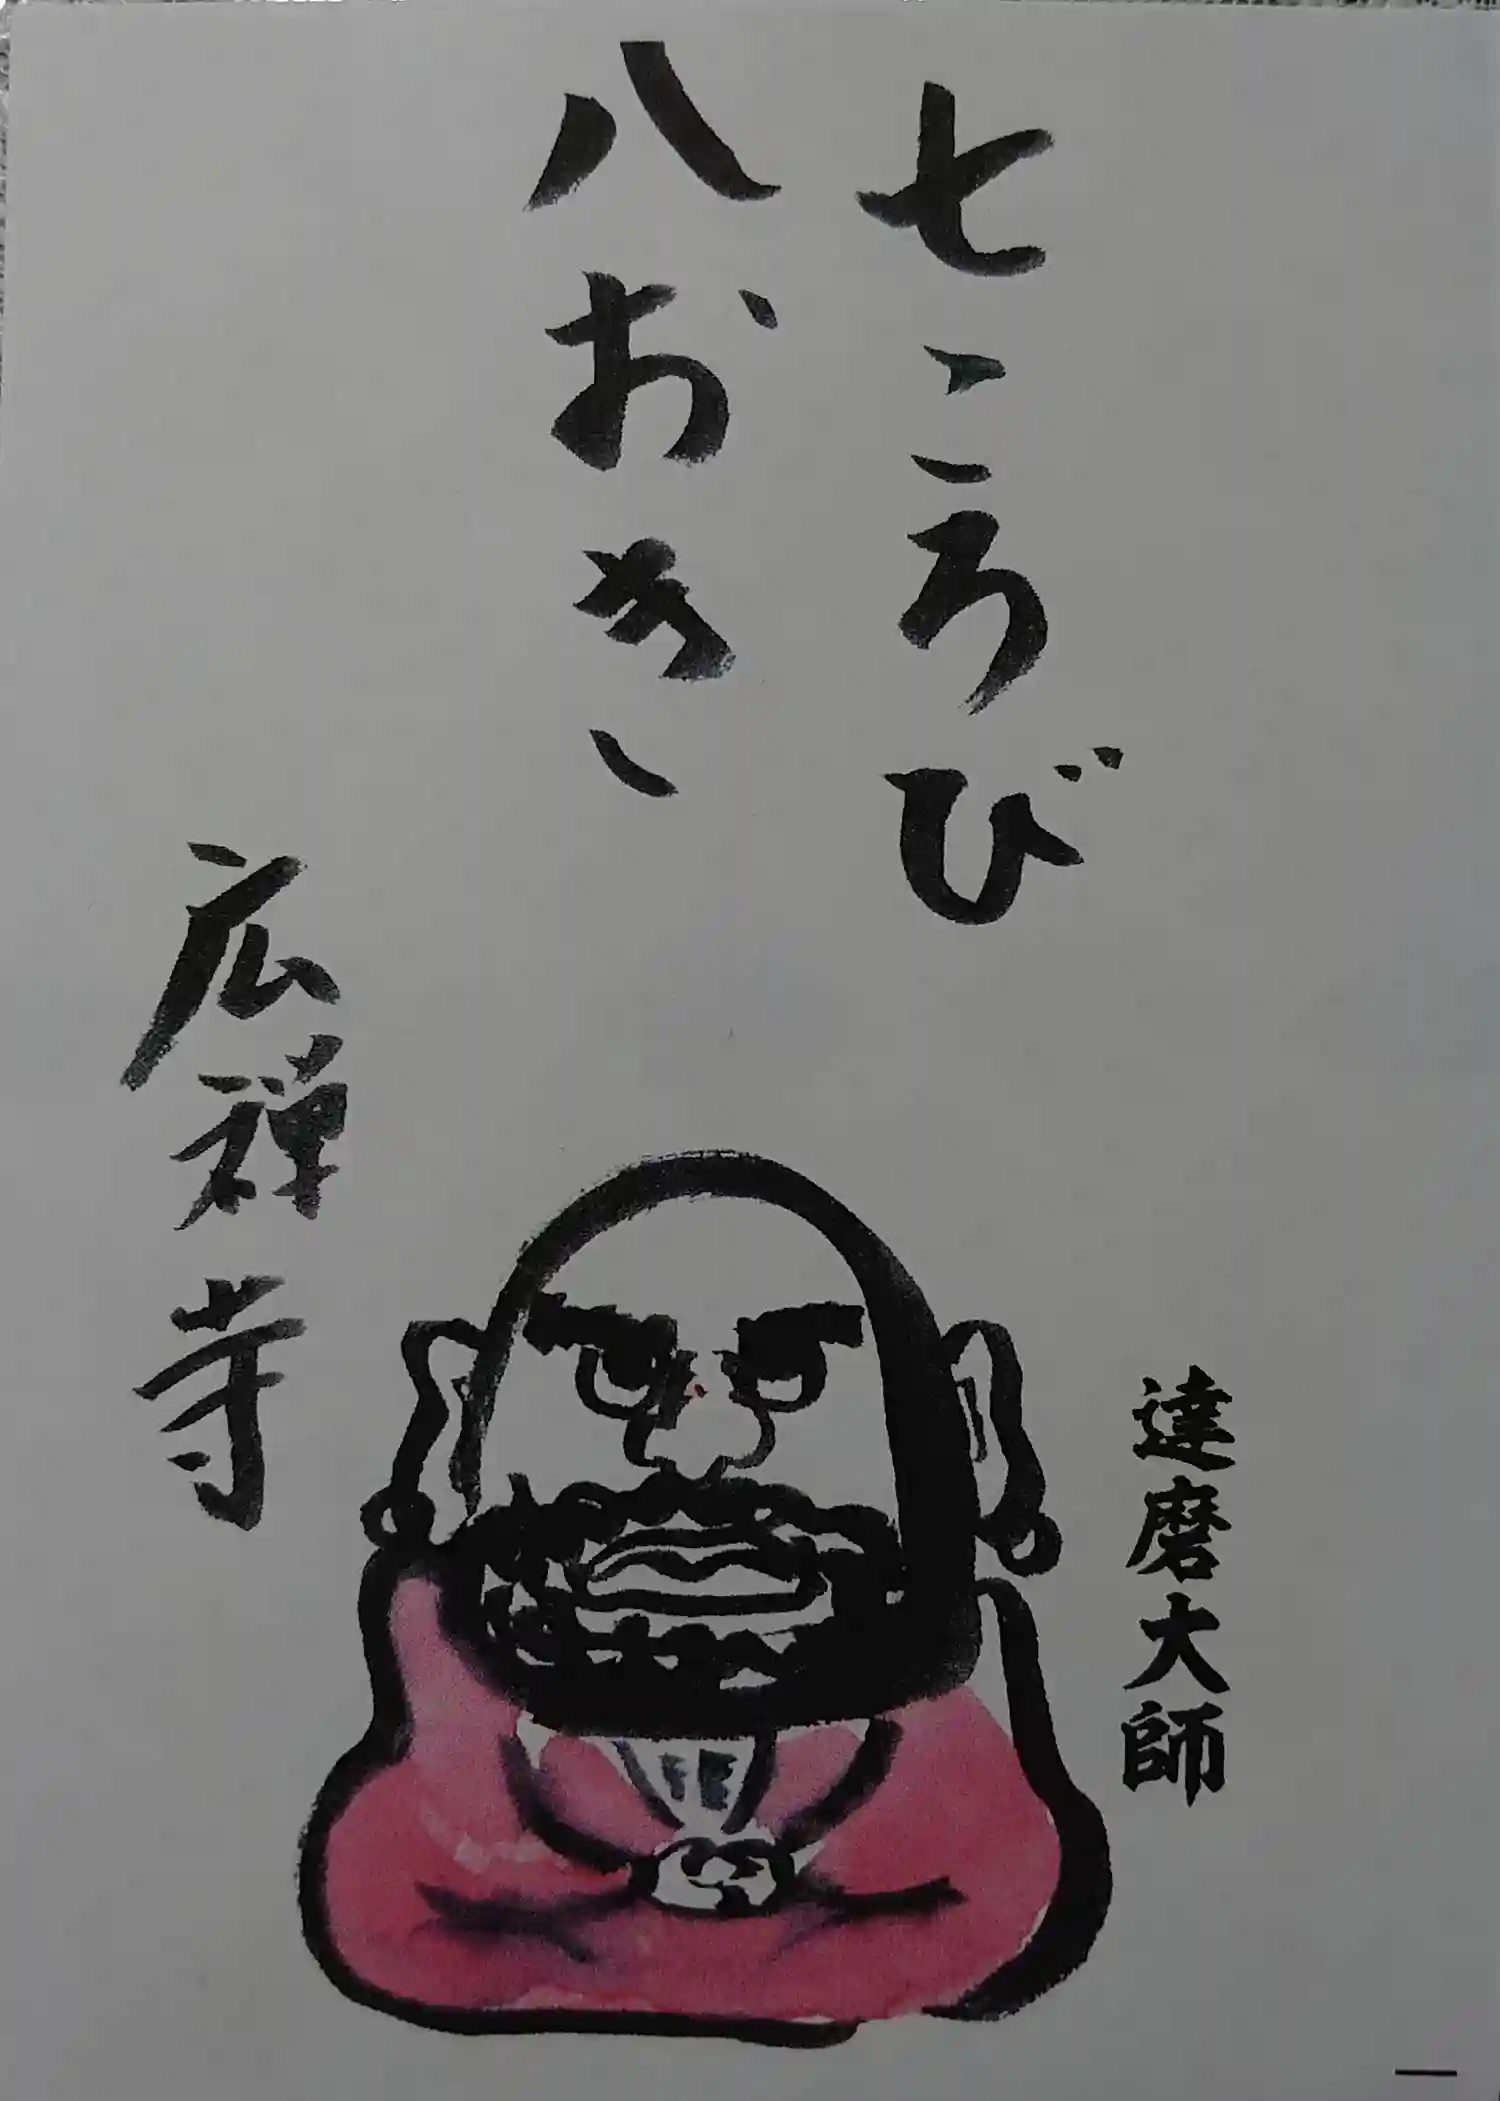 七ころび
八おき
広禅寺
達磨大師